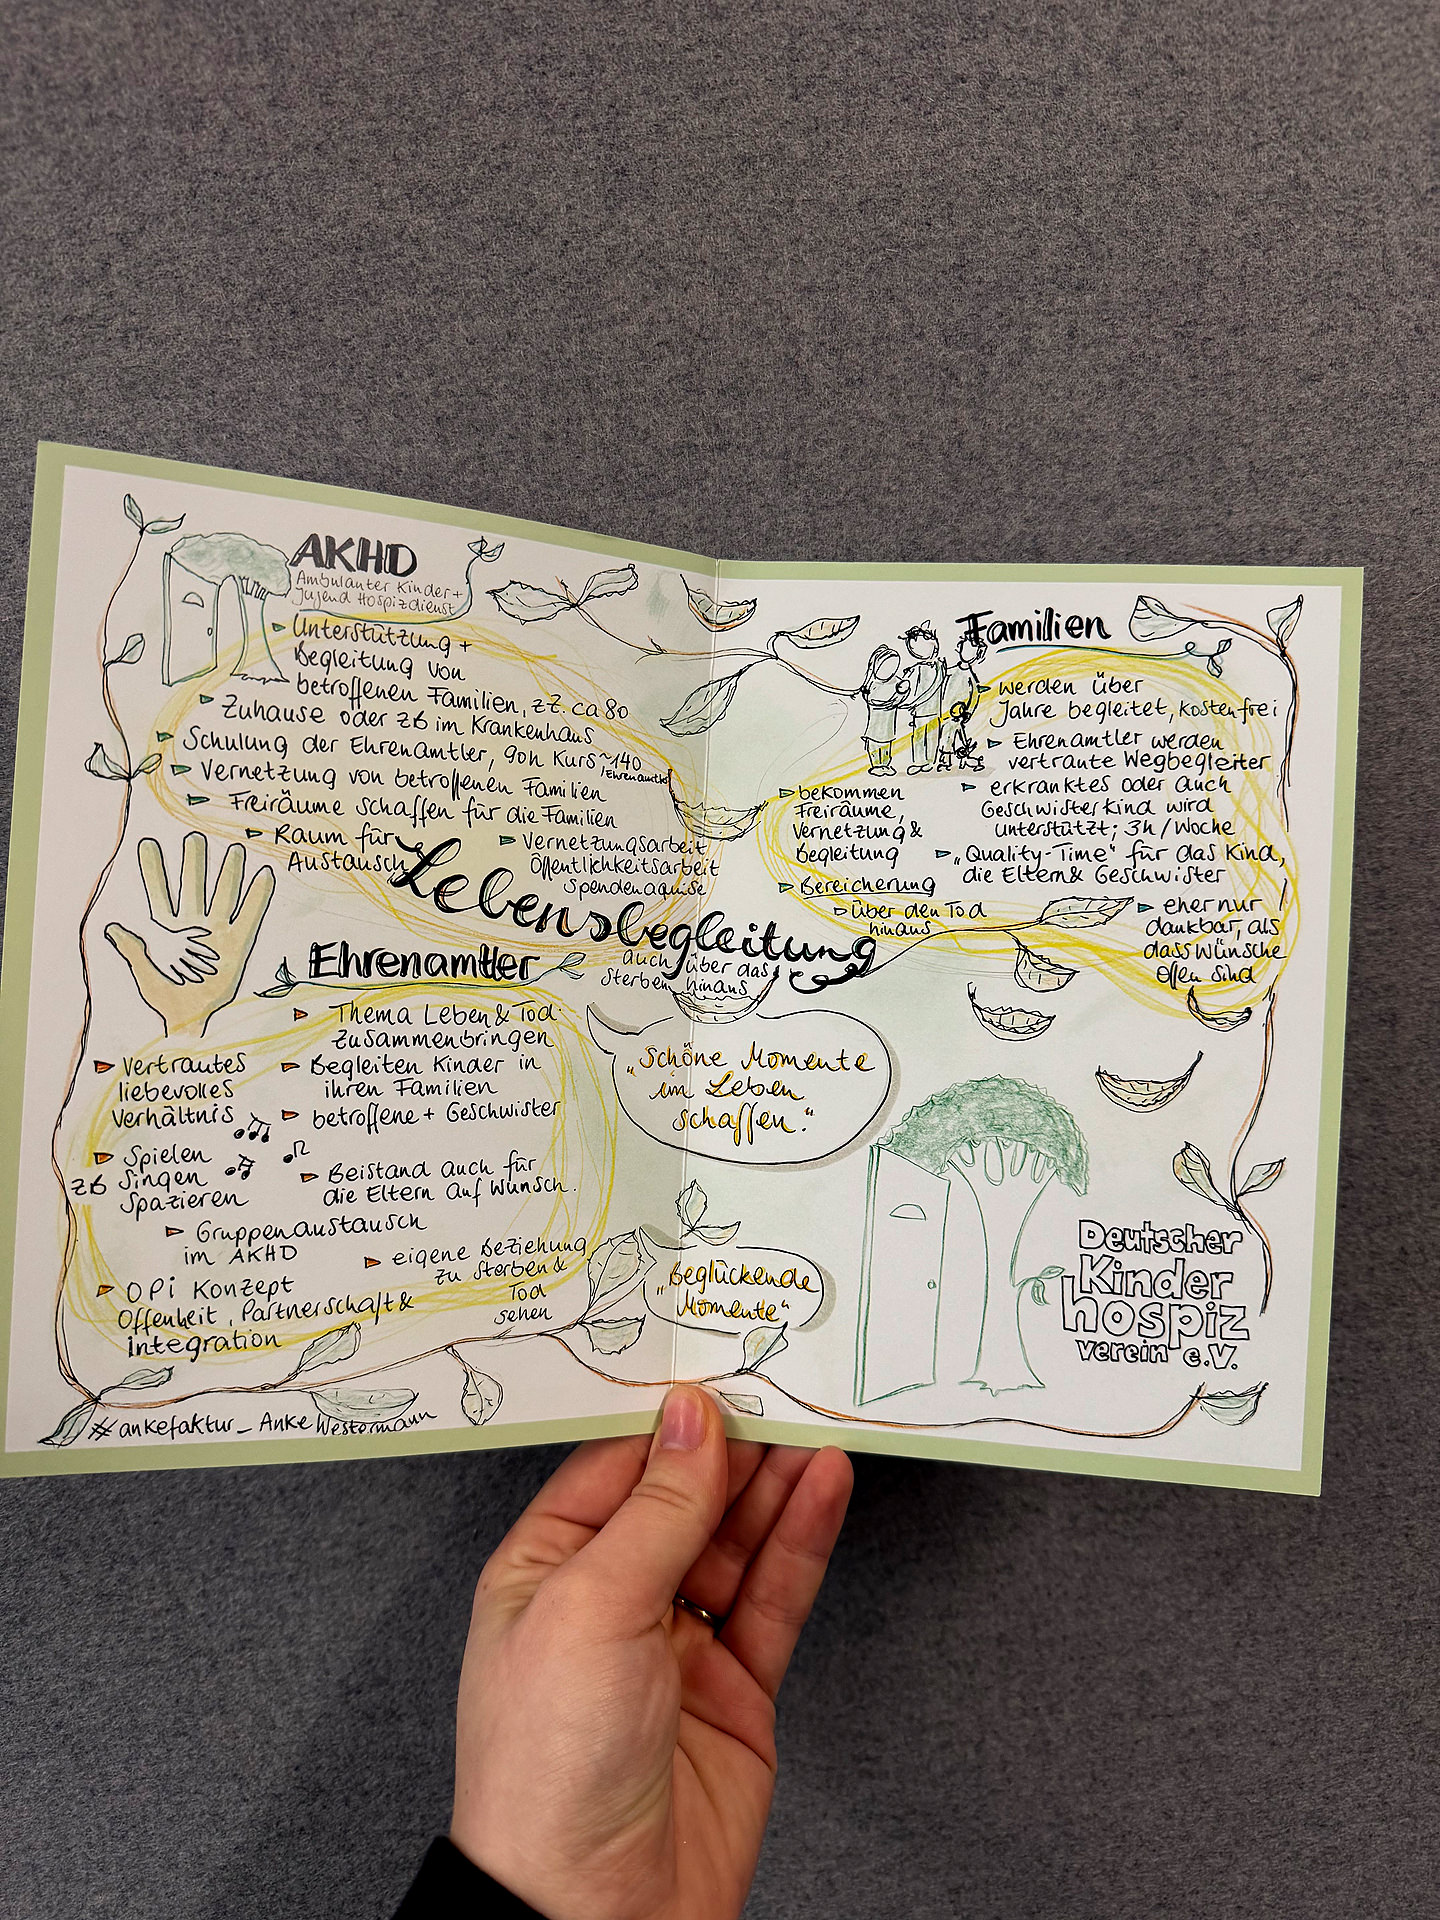 AKHD
Ambulanter Kinder+
Jugend Hospizdienst
Unterstützung +
Begleitung von
betroffenen Familien, zZ. ca 80
Zuhause oder zB im Krankenhaus
Schulung der Ehrenamtler, 90h Kurs ~140
Ehrenamtler
Vernetzung von betroffenen Familien
Freiräume schaffen für die Familien
Raum für
Austausch
Vernetzungsarbeit
Öffentlichkeitsarbeit
Spendenaquise
Lebensbegleitung
auch über das
Sterben hinaus
Familien
werden über
Jahre begleitet, kostenfrei
Ehrenamtler werden
vertraute Wegbegleiter
erkranktes oder auch
Geschwisterkind wird
unterstützt; 3h/Woche
"Quality-Time" für das Kind,
die Eltern & Geschwister
bekommen
Freiräume,
Vernetzung &
Begleitung
Bereicherung
über den Tod
hinaus
eher nur
dankbar, als
dass Wünsche
offen sind
Ehrenamtler
Thema Leben & Tod
zusammenbringen
Begleiten Kinder in
ihren Familien
betroffene + Geschwister
Beistand auch für
die Eltern auf Wunsch.
Vertrautes
liebevolles
Verhältnis
Spielen
zB Singen
Spazieren
Gruppenaustausch
im AKHD
eigene Beziehung
zu Sterben &
Tod
sehen
OPi Konzept
Offenheit, Partnerschaft &
Integration
"Schöne Momente
im Leben
schaffen."
"Beglückende
Momente"
Deutscher
Kinder
hospiz
verein e.V.
#ankefaktur_Anke Westermann